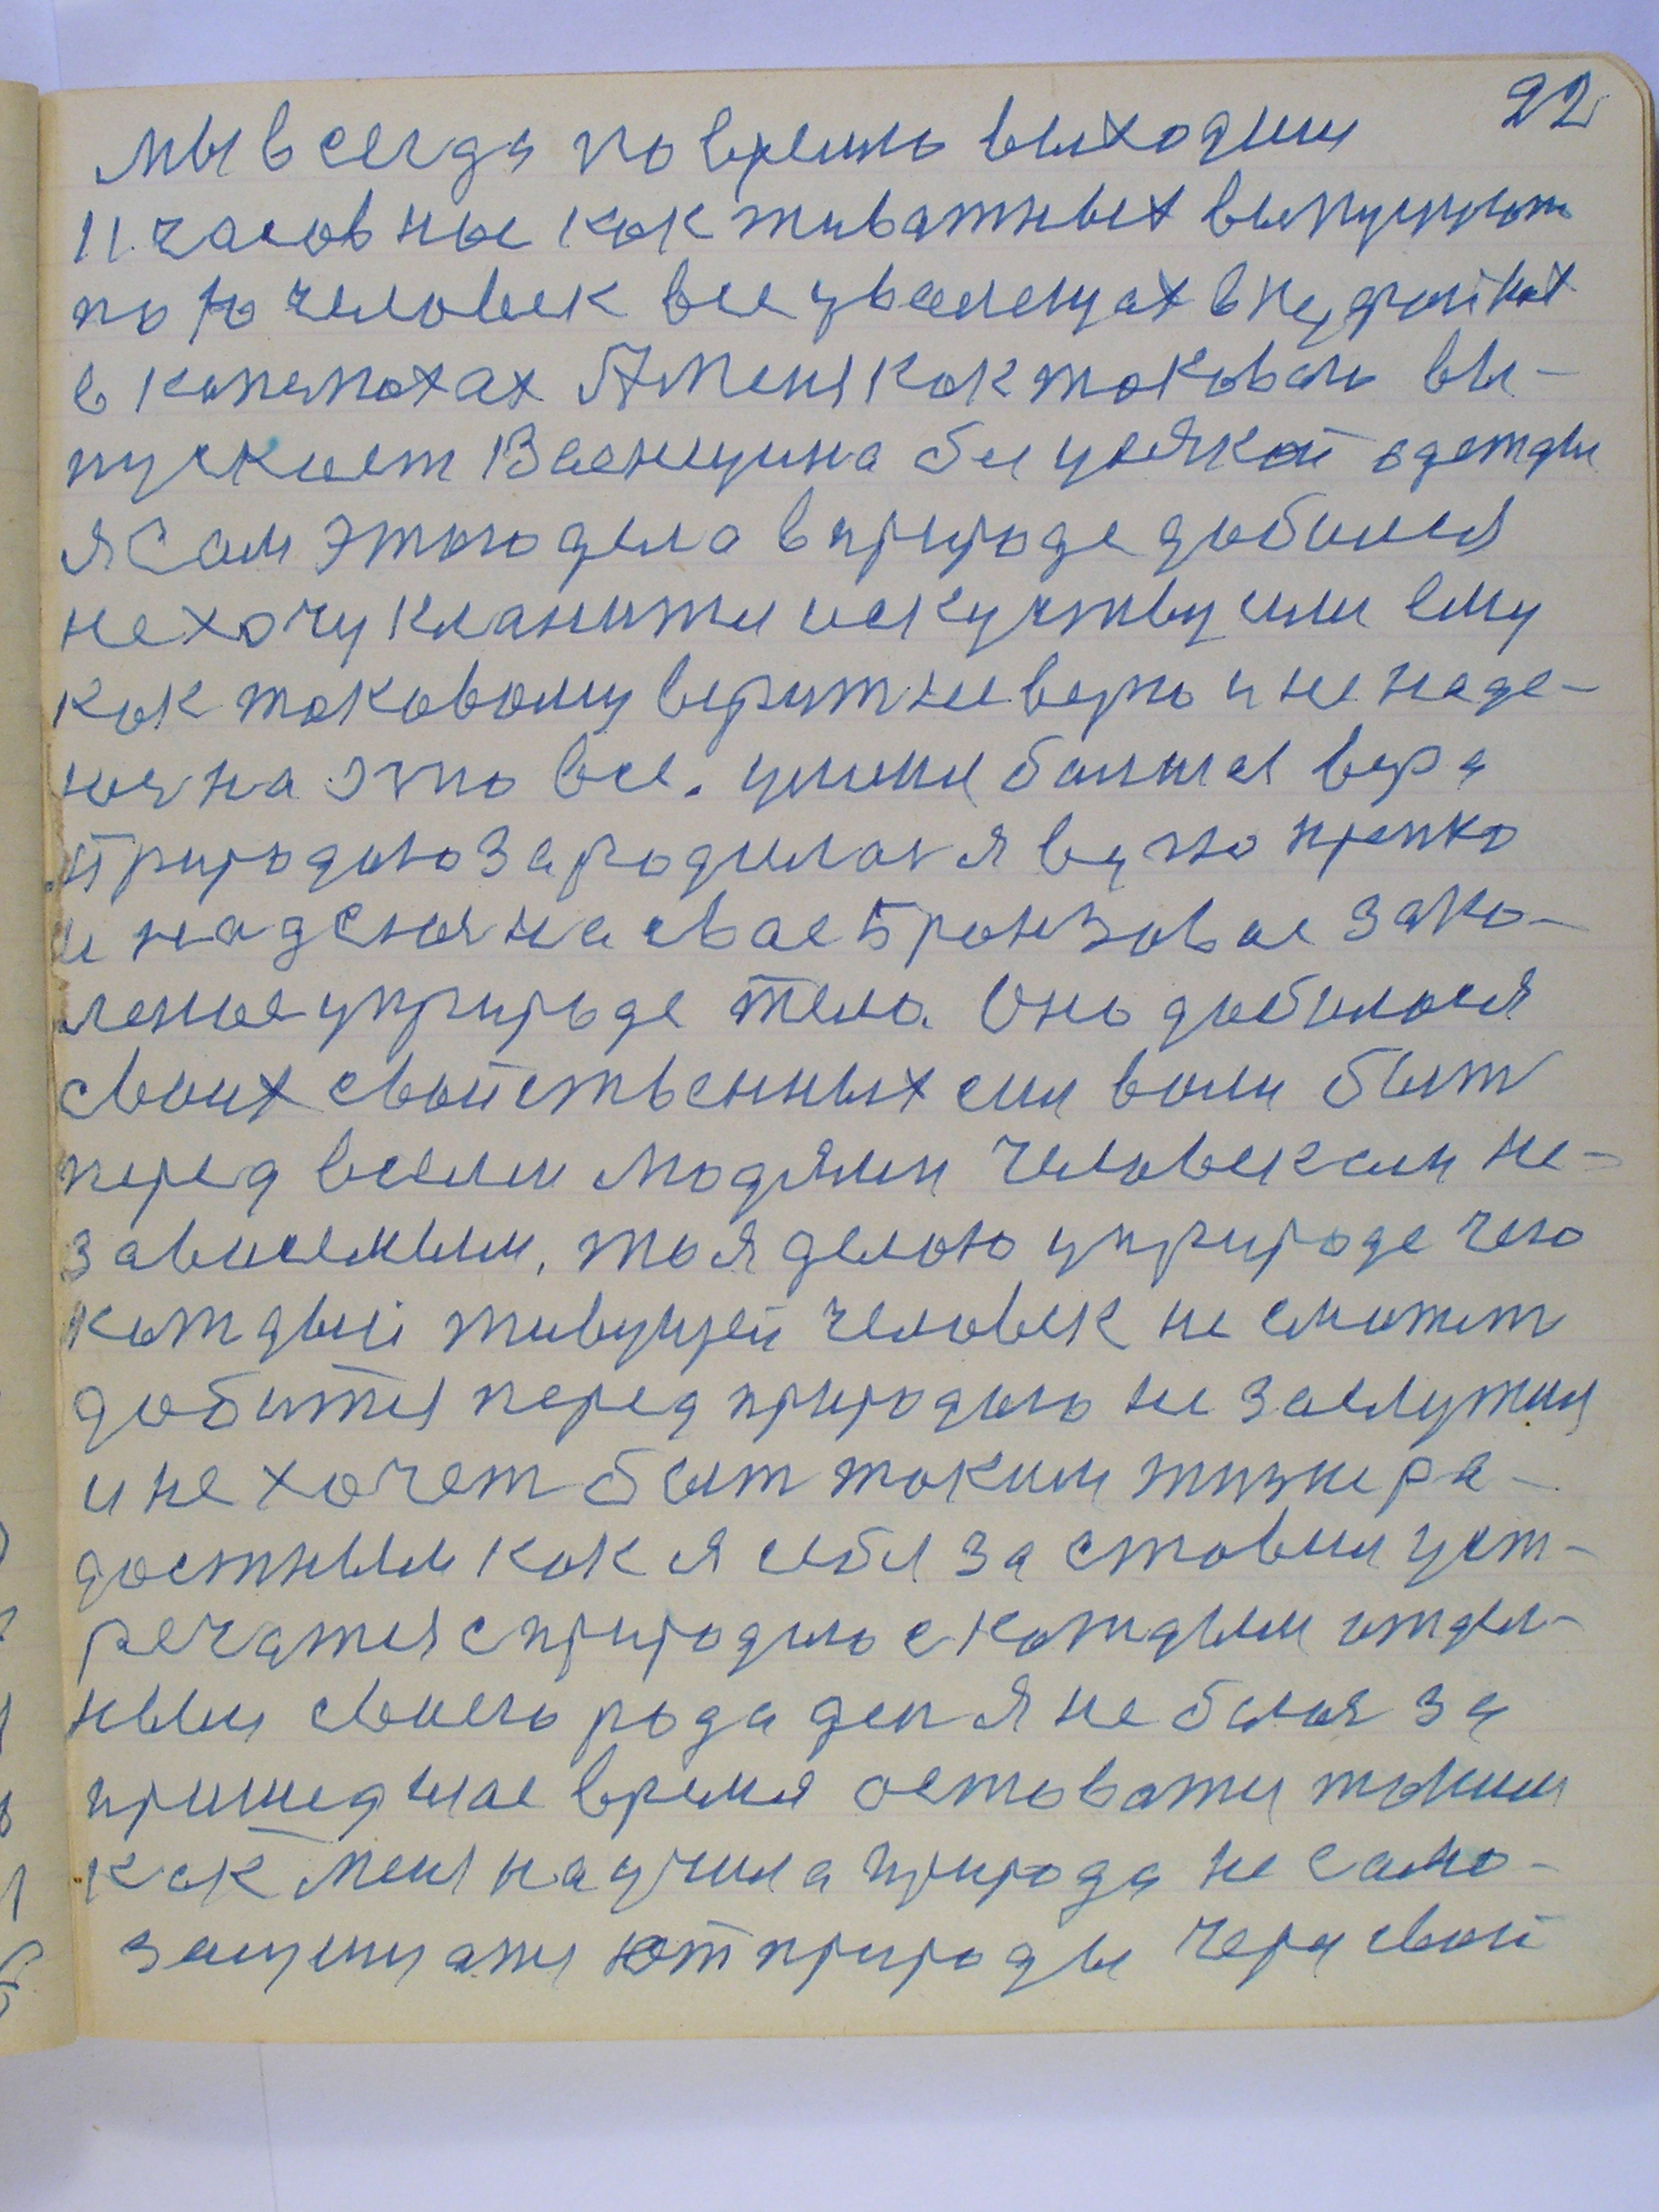 22
мы всегда по время выходим
11 часов нас как животных выпускают
по 10 человек все у валенцах в куфайках
в капелюхах А меня как такового вы-
пускает Военщина без усякой одежды
я сам этого дела в природе добился
не хочу кланится искуству или ему
как таковому верит не верю и не наде-
юся на это все. у меня болшая вера
природою зародилася верю крепко
и надеюя на свае бронзовае зако-
леное у природе тело. Оно добилося
своих свойственных сил воли быт
перед всеми людями человеком не-
зависемым, то я делаю у природе чего
каждый живущей человек не сможет
добится перед природою не заслужил
и не хочет быт таким жизнера-
достным как я себя заставил уст-
речатися с природою с каждым отдел-
ным своего рода ден я не боюя за
пришедшае время оставатся таким
как меня научила природа не само-
защищатся от природы через свой